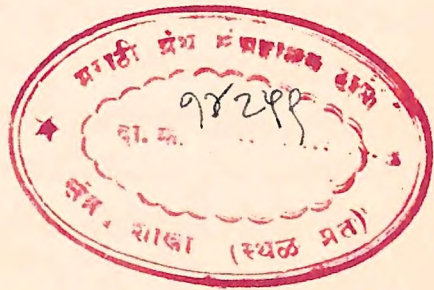 मराठी ग्रंथ संग्रहालय ठाणे
दा. क्र. १४२५९
शाखा (स्थळ प्रत)